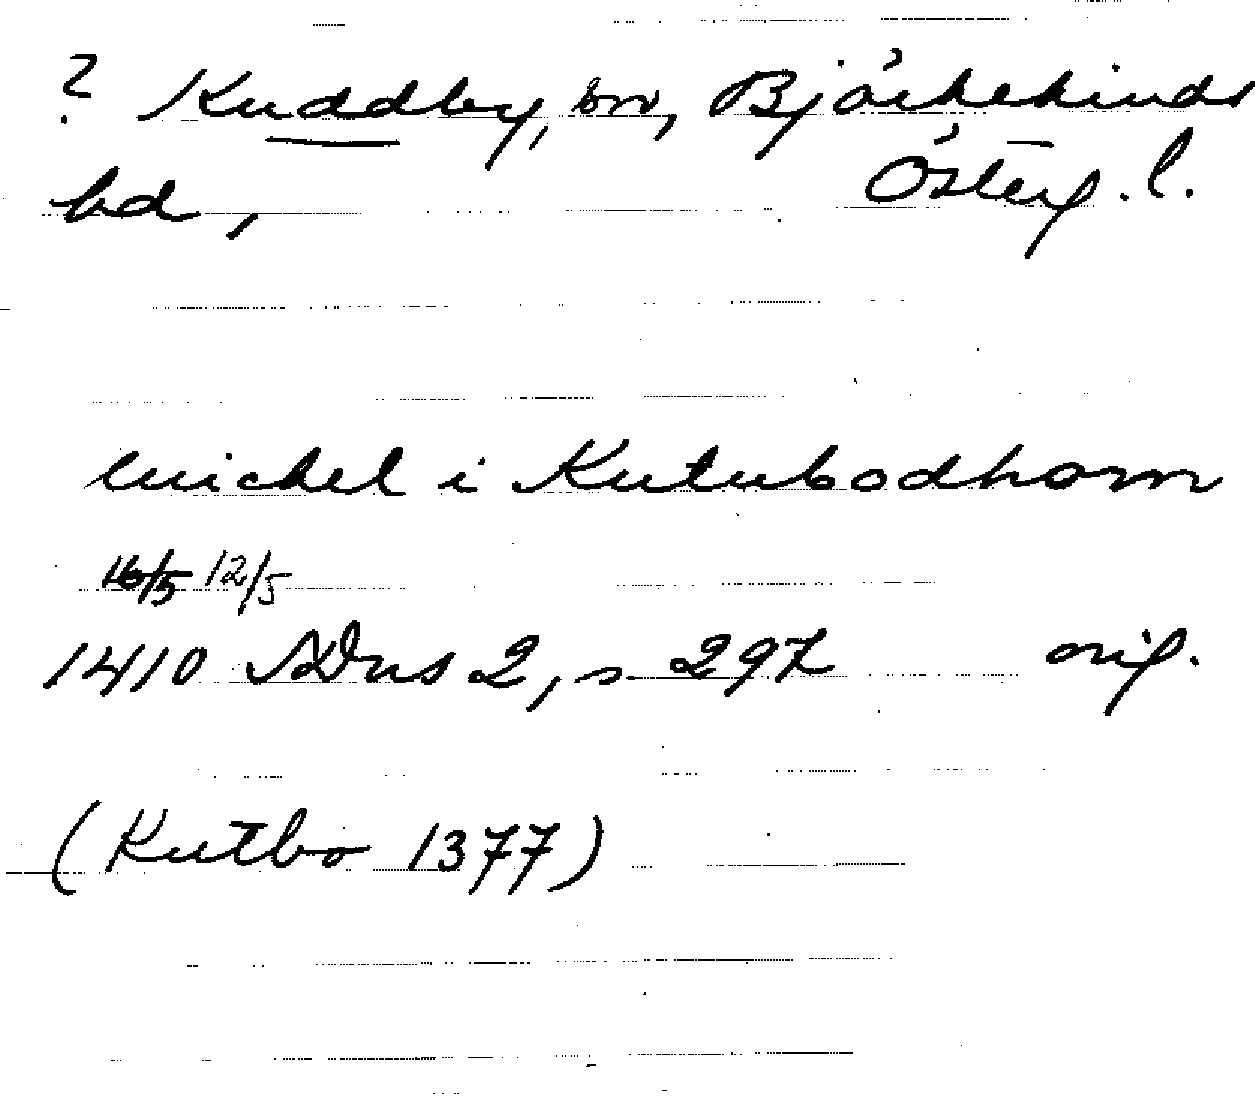 ? Kuddby, sn, Björkekinds
hd, Österg. l.
michel i Kutubodhom
16/5 12/5
1410 SDns 2, s 297 orig.
(Kutbo 1377)